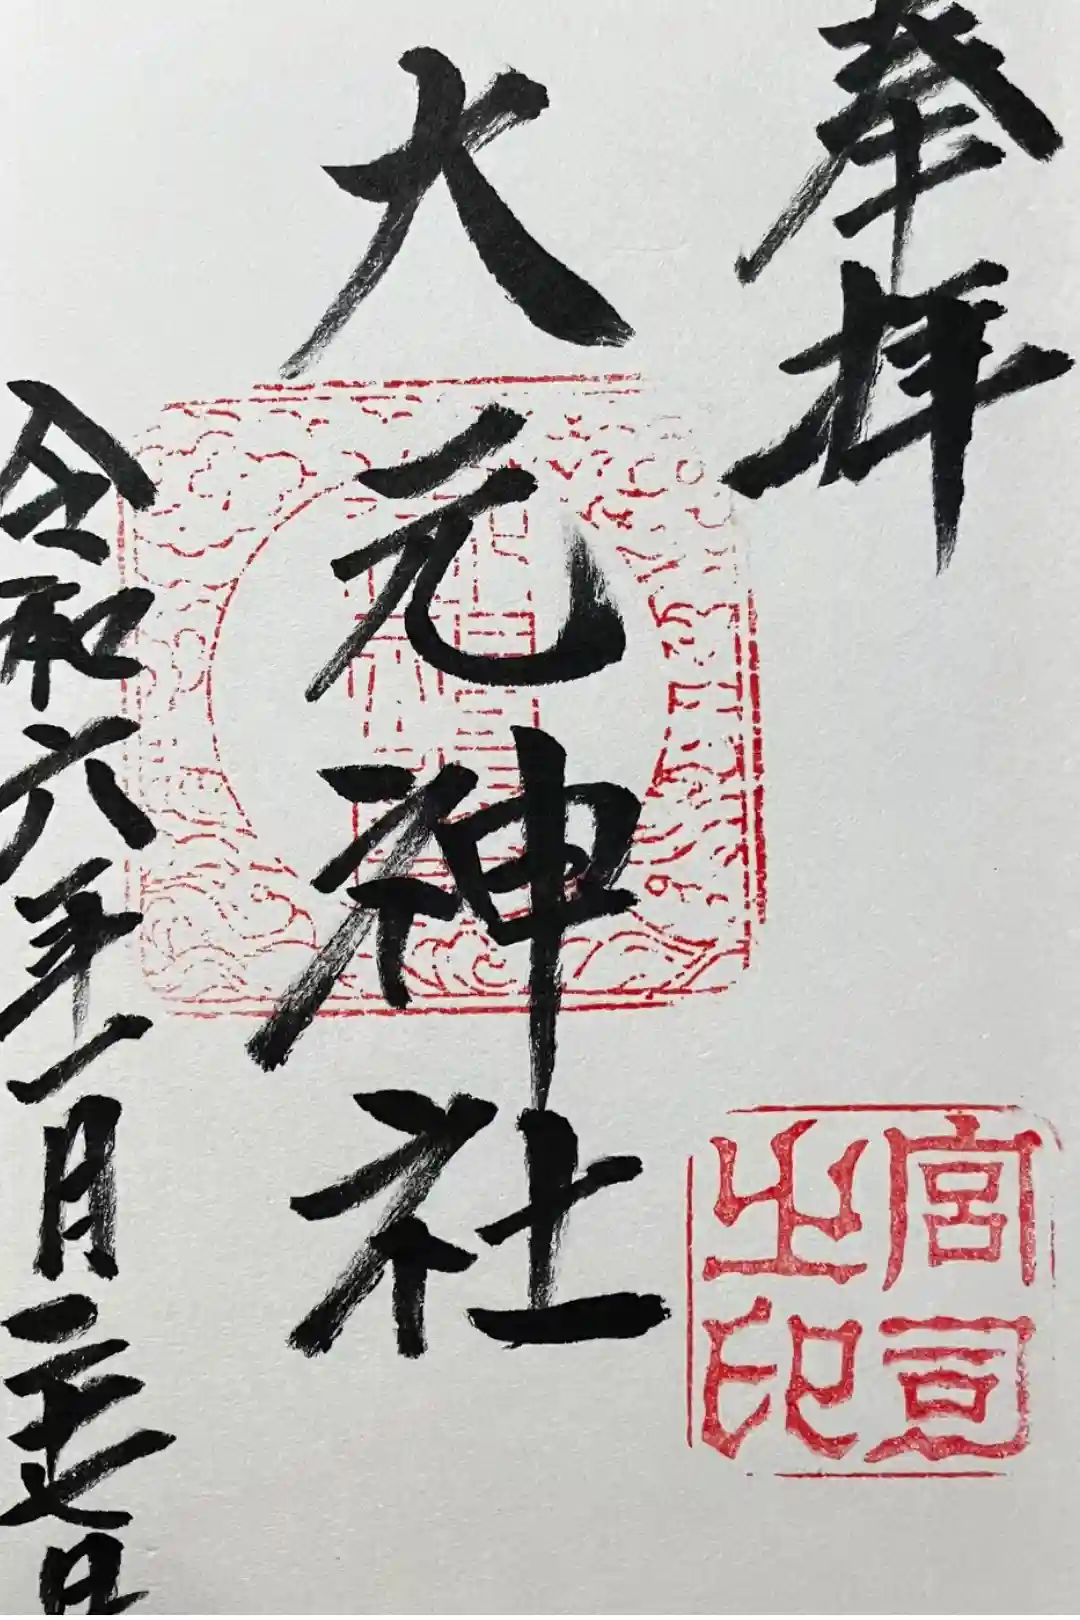 奉拝
大元神社
令和六年一月二十七日
宮司
之印